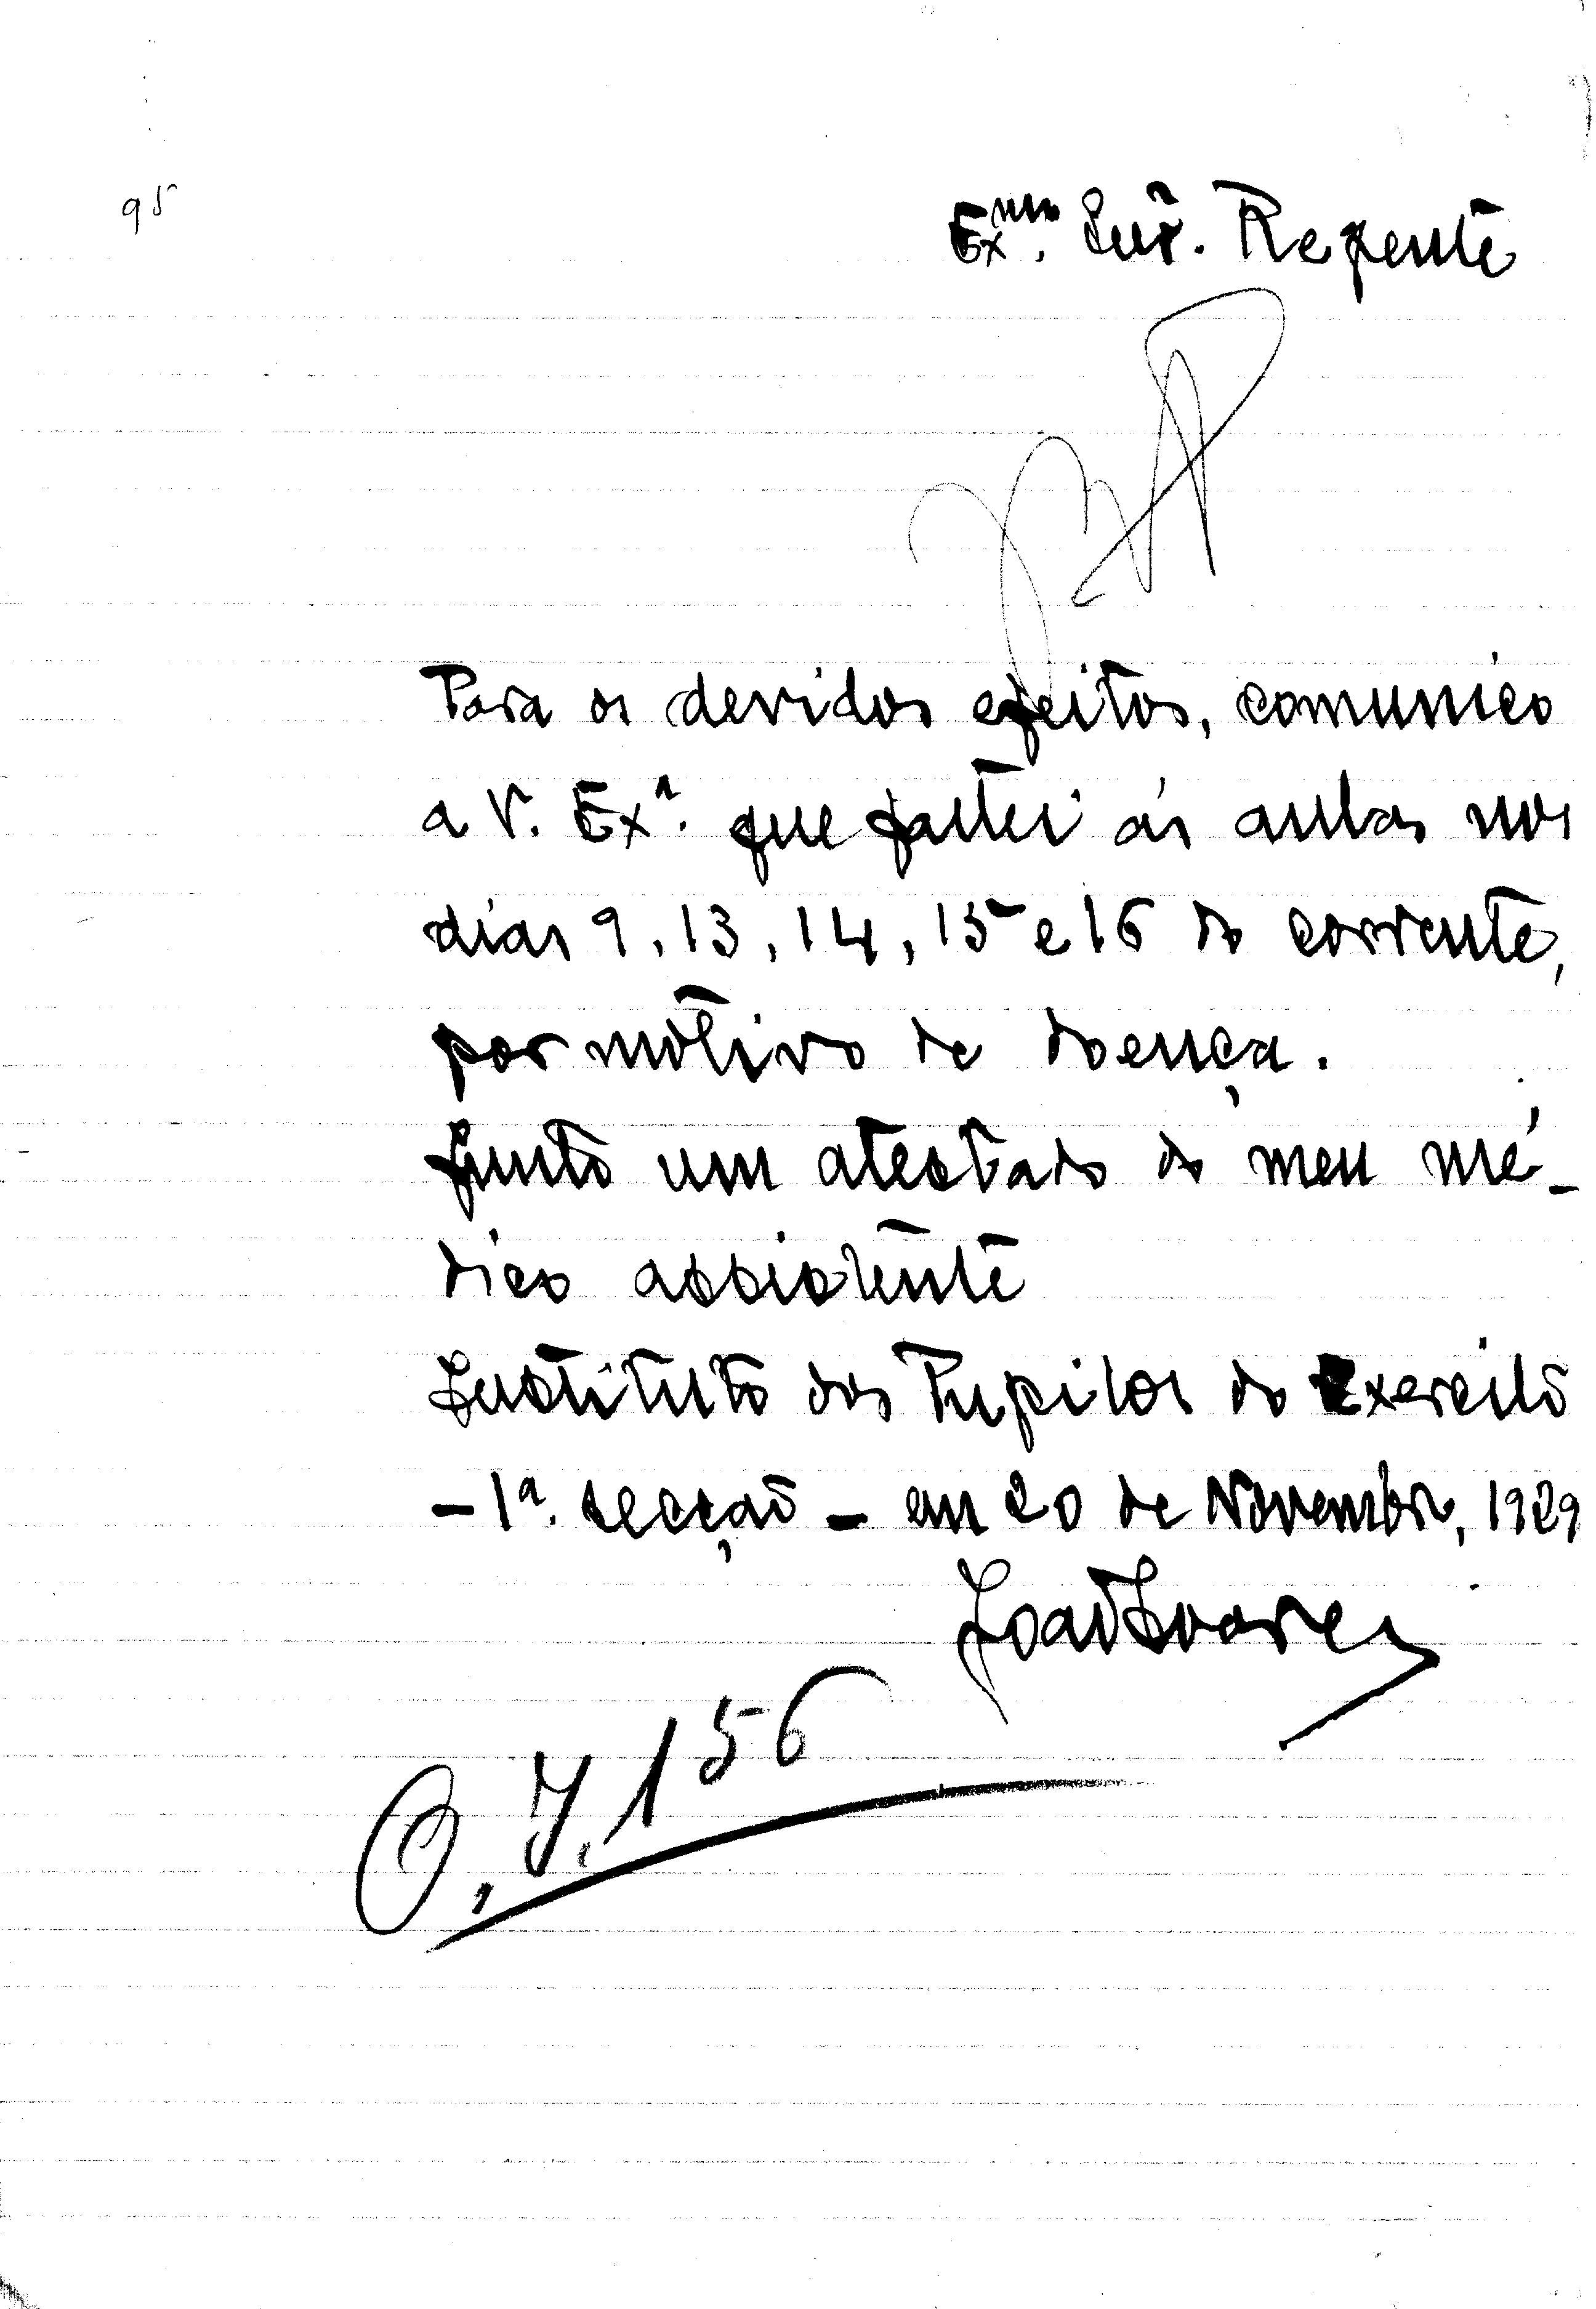 95
Ex.mo Snr. Regente
Para os devidos efeitos, comunico
a V. Ex.ª que faltei ás aulas nos
dias 9, 13, 14, 15 e 16 do corrente,
por motivo de doença.
Junto um atestado do meu mé-
dico assistente
Instituto dos Pupilos do Exercito
- 1ª. secção - em 20 de Novembro, 1929
João Soares
O. J. 156